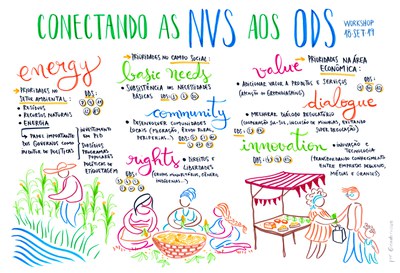 CONECTANDO AS NVS AOS ODS
WORKSHOP
18 SET 19
energy
PRIORIDADES NO
SETOR AMBIENTAL:
• RESÍDUOS
• RECURSOS NATURAIS
• ENERGIA
→ PAPEL IMPORTANTE
DOS GOVERNOS COMO
DE POLÍTICAS
INVESTIMENTO
EM P&D
POLÍTICAS DE
ETIQUETAGEM
ODS:
PRIORIDADES NO CAMPO SOCIAL:
basic needs
• SUBSISTÊNCIA DE NECESSIDADES
BÁSICAS ODS:
community
• DESENVOLVER COMUNIDADES
LOCAIS (MIGRAÇÃO, ÊXODO RURAL,
PERIFERIAS...) ODS:
rights
• DIREITOS E
LIBERDADES
GÊNERO,
INDÍGENAS...)
ODS:
value
PRIORIDADES NA ÁREA
ECONÔMICA:
• ADICIONAR VALOR A PRODUTOS E SERVIÇOS
(ATENÇÃO AO GREENWASHING) ODS:
dialogue
• MELHORAR DIÁLOGO REGULATÓRIO
INCLUSÃO DE MINORIAS, EVITANDO
SUPER REGULAÇÃO)
ODS:
innovation
• INOVAÇÃO E
TECNOLOGIA
(TRANSBORDANDO CONHECIMENTO
ENTRE EMPRESAS PEQUENAS,
MÉDIAS E GRANDES)
ODS: